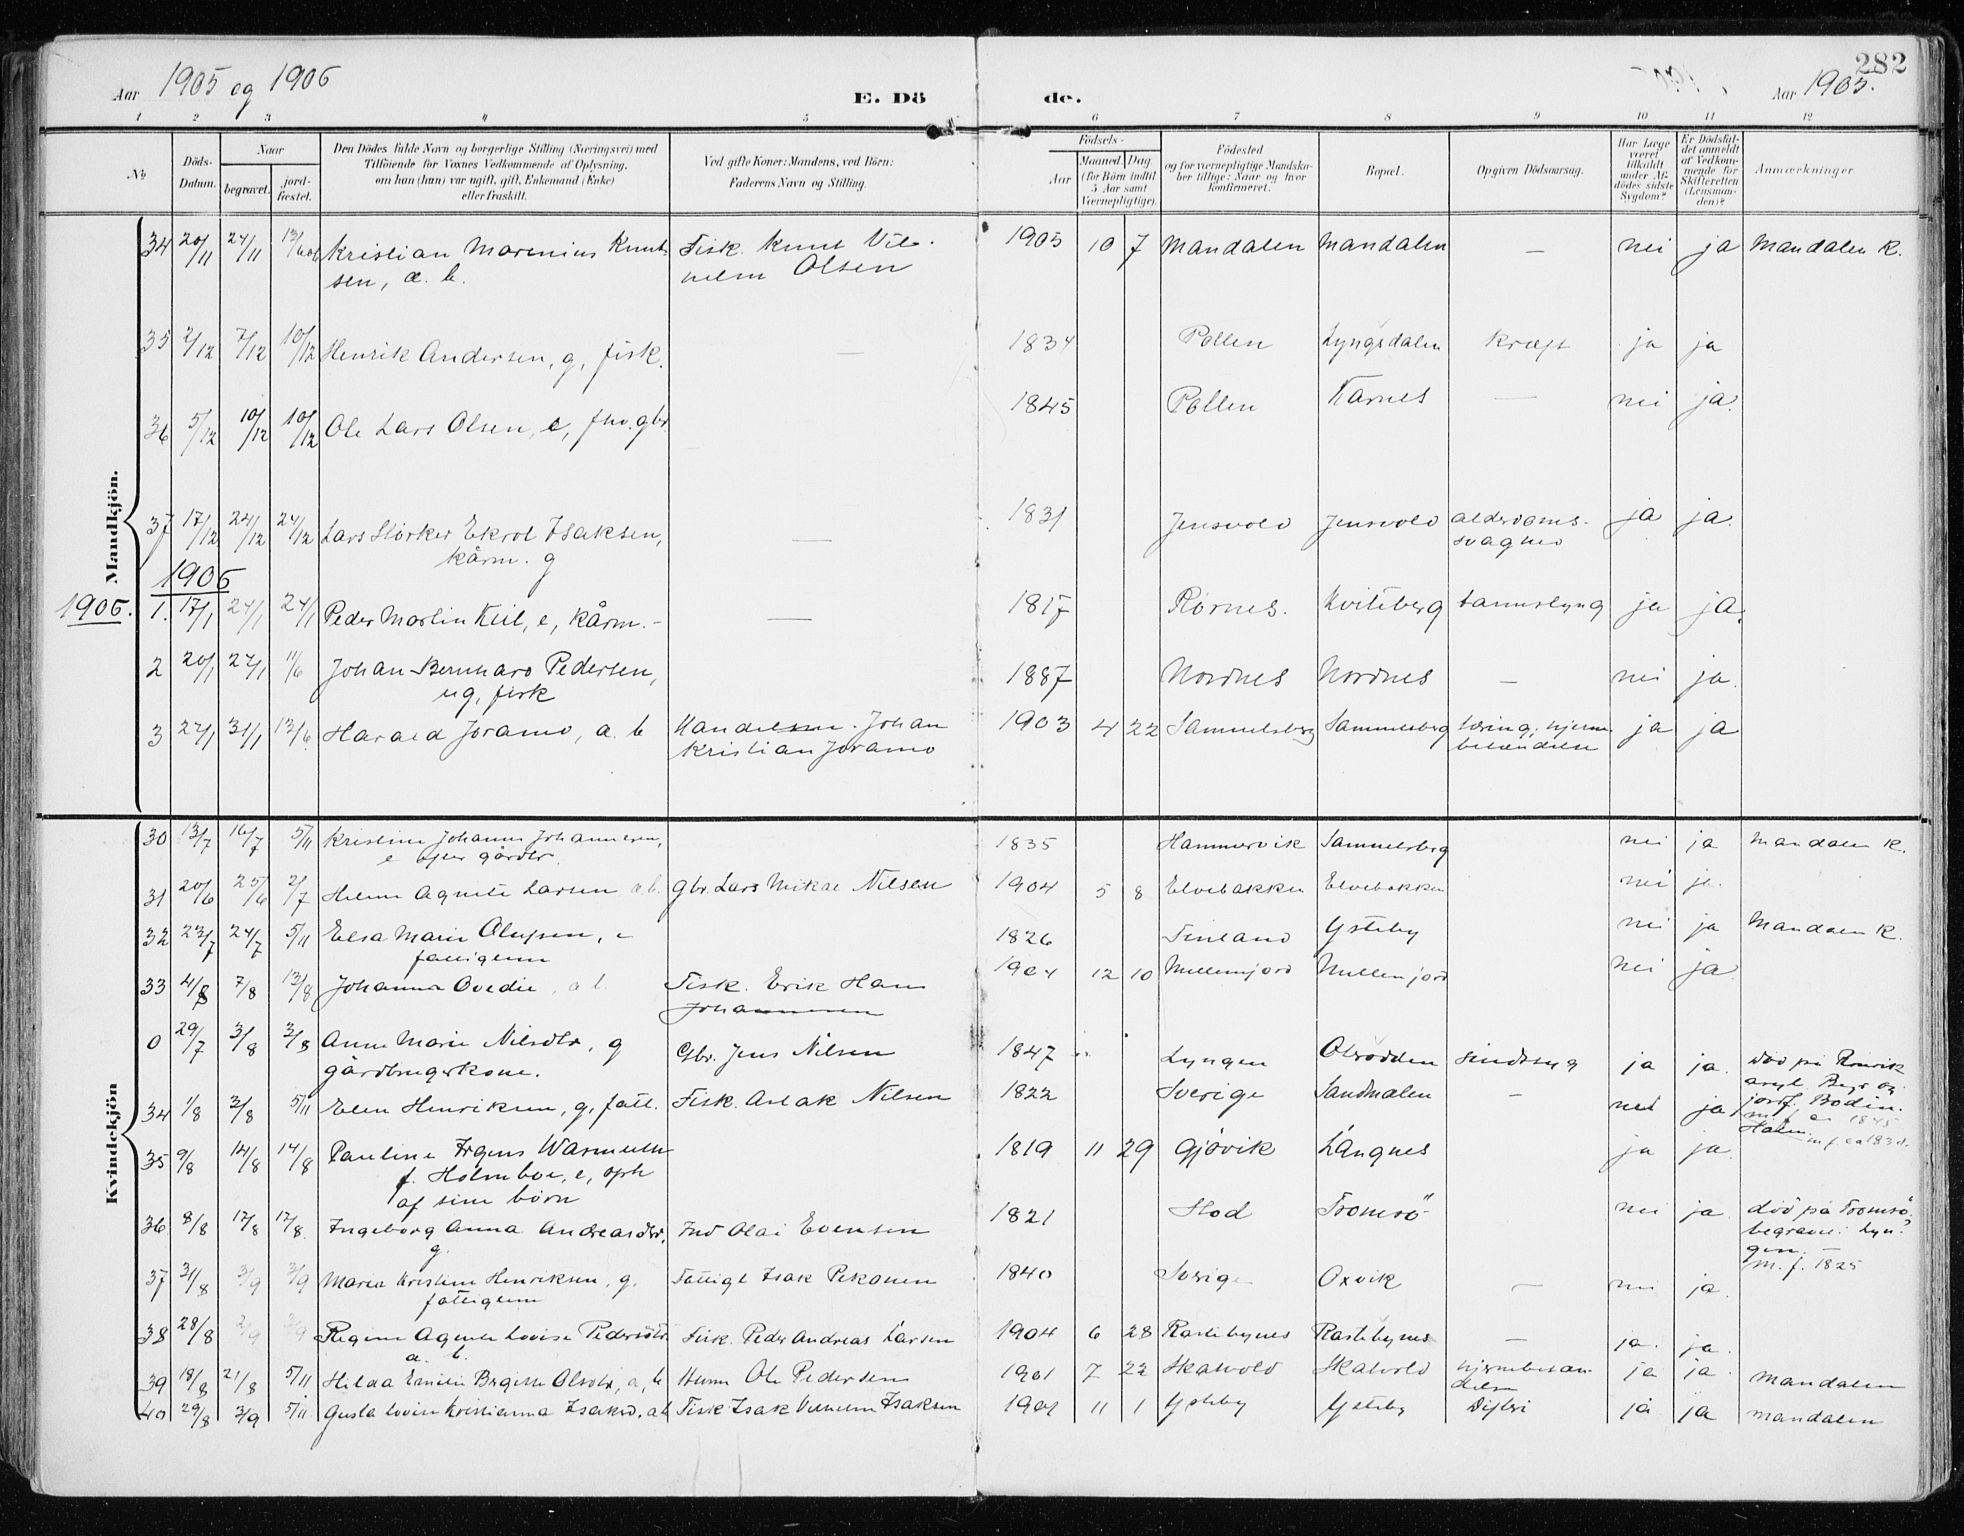 282
Aar 1905 og 1906 E. Dö de. Aar 1905.
1 2 3 4 5 6 7 8 9 10 11 12
No
Döds-Datum.
Naar
begravet.
jord-fæstet.
Den Dödes fulde Navn og borgerlige Stilling (Næringsvei) med
Tilföiende for Voxnes Vedkommende af Oplysning,
om han (hun) var ugift, gift, Enkemand (Enke)
eller fraskilt.
Ved gifte Koner: Mandens, ved Börn:
Faderens Navn og Stilling.
Födsels-
Aar
Maaned. Dag
(for Börn indtil
5 Aar samt
Værnepligtige).
Födested
og for værnepligtige Mandska-
ber tillige: Naar og hvor
konfirmeret.
Bopæl.
Opgiven Dödsaarsag.
Har Læge
været
tilkaldt
under Af-
dödes sidste
Sygdom?
Er Dödsfal-
det anmeldt
af Vedkom-
mende for
Skifteretten
(Lensman-
den)?
Anmærkninger
Mandkjön.
34 20/11 24/11 Kristian Marenius Knut- Fisk. Knut Vil- 1905 10 7 Mandalen Mandalen — nei ja Mandalen K.
sen, æ. b. helm Olsen
35 2/12 7/12 10/12 Henrik Andersen, g, fisk. — 1834 Pollen Lyngsdalen kræft ja ja
36 5/12 10/12 10/12 Ole Lars Olsen, e, fhv. gbr. 1845 Pollen Karnes — nei ja.
37 17/12 24/12 24/12 Lars Størker Ekrol Isaksen, — 1831 Jensvold Jensvold alderdoms- ja ja.
kårm. g svaghed
1906
1906. 1. 17/1 24/1 24/1 Peder Martin Keil, e, kårm. — 1817 Rørnes. Kviteberg ja ja.
2 20/1 27/1 11/6 Johan Bernhard Pedersen, 1887 Nordnes Nordnes — nei ja.
ug, fisk
3 27/1 31/1 13/6 Harald Joramo, a. b Johan 1903 4 22 Sammelsberg Sammelsberg ja ja
Kristian Joramo
Kvindekjön
30 13/7 16/7 5/11 Kristine Johanne Johannesen, 1835 Hammervik Sammelsberg nei ja Mandalen K.
e efter gårdbr.
31 20/6 25/6 2/7 Helene Agnete Larsen a. b. Gbr. Lars Mikal Nilsen 1904 5 8 Elvebakken Elvebakken nei ja.
32 23/7 24/7 5/11 Elsa Marie Olufsen, e 1826 Finland Ysteby nei ja Mandalen K.
fattiglem
33 4/8 7/8 13/8 Johanna Ovedie, a b. Fisk. Erik Hans 1904 12 10 nei ja.
Johannesen
0 29/7 3/8 3/8 Anne Marie Nilsdtr, g Gbr. Jens Nilsen 1847 Lyngen Olrødden sindssyg ja ja. død på Rønvik
gårdbrugerkone. asyl. Begr. og
34 1/8 3/8 5/11 Elen Henriksen, g, fatt. Fisk. Aslak Nilsen 1822 Sverige Sandnalen — nei ja jordf. Bodin.
35 9/8 14/8 14/8 Pauline Irgens Warmuth 1819 11 29 Gjøvik Langnes ja ja.
f. Holmboe, e, oph
af sine børn
36 8/8 17/8 17/8. Ingeborg Anna Andreasdtr, Ind Olai Evensen 1821 Hod Tromsø nei ja død på Tromsø,
g. begravet i Lyn-
gen. —
m. f. 1825
37 31/8 3/9 3/9 Maria Kristine Henriksen, g, Fattigl Isak Pekonen 1840 Sverige Oxvik — nei ja.
fattiglem
38 28/8 3/9 Regine Agnete Lovise Pedersdtr Fisk. Peder Andreas Larsen 1904 6 28 Rastebynes Rastebynes — ja. ja.
a. b.
39 18/8 21/8 5/11 Hilda Emilie Bergitte Olsdtr, a, b Ole Pedersen 1901 7 22 Skatvold Skatvold hjernebetæn- ja ja. Mandalen
delse
40 29/8 3/9 5/11 Gusta Lovise Kristianna Isaksd, ab Fisk Isak Vilhelm Isaksen 1904 11 1 Ysteby Ysteby Difteri ja ja mandalen